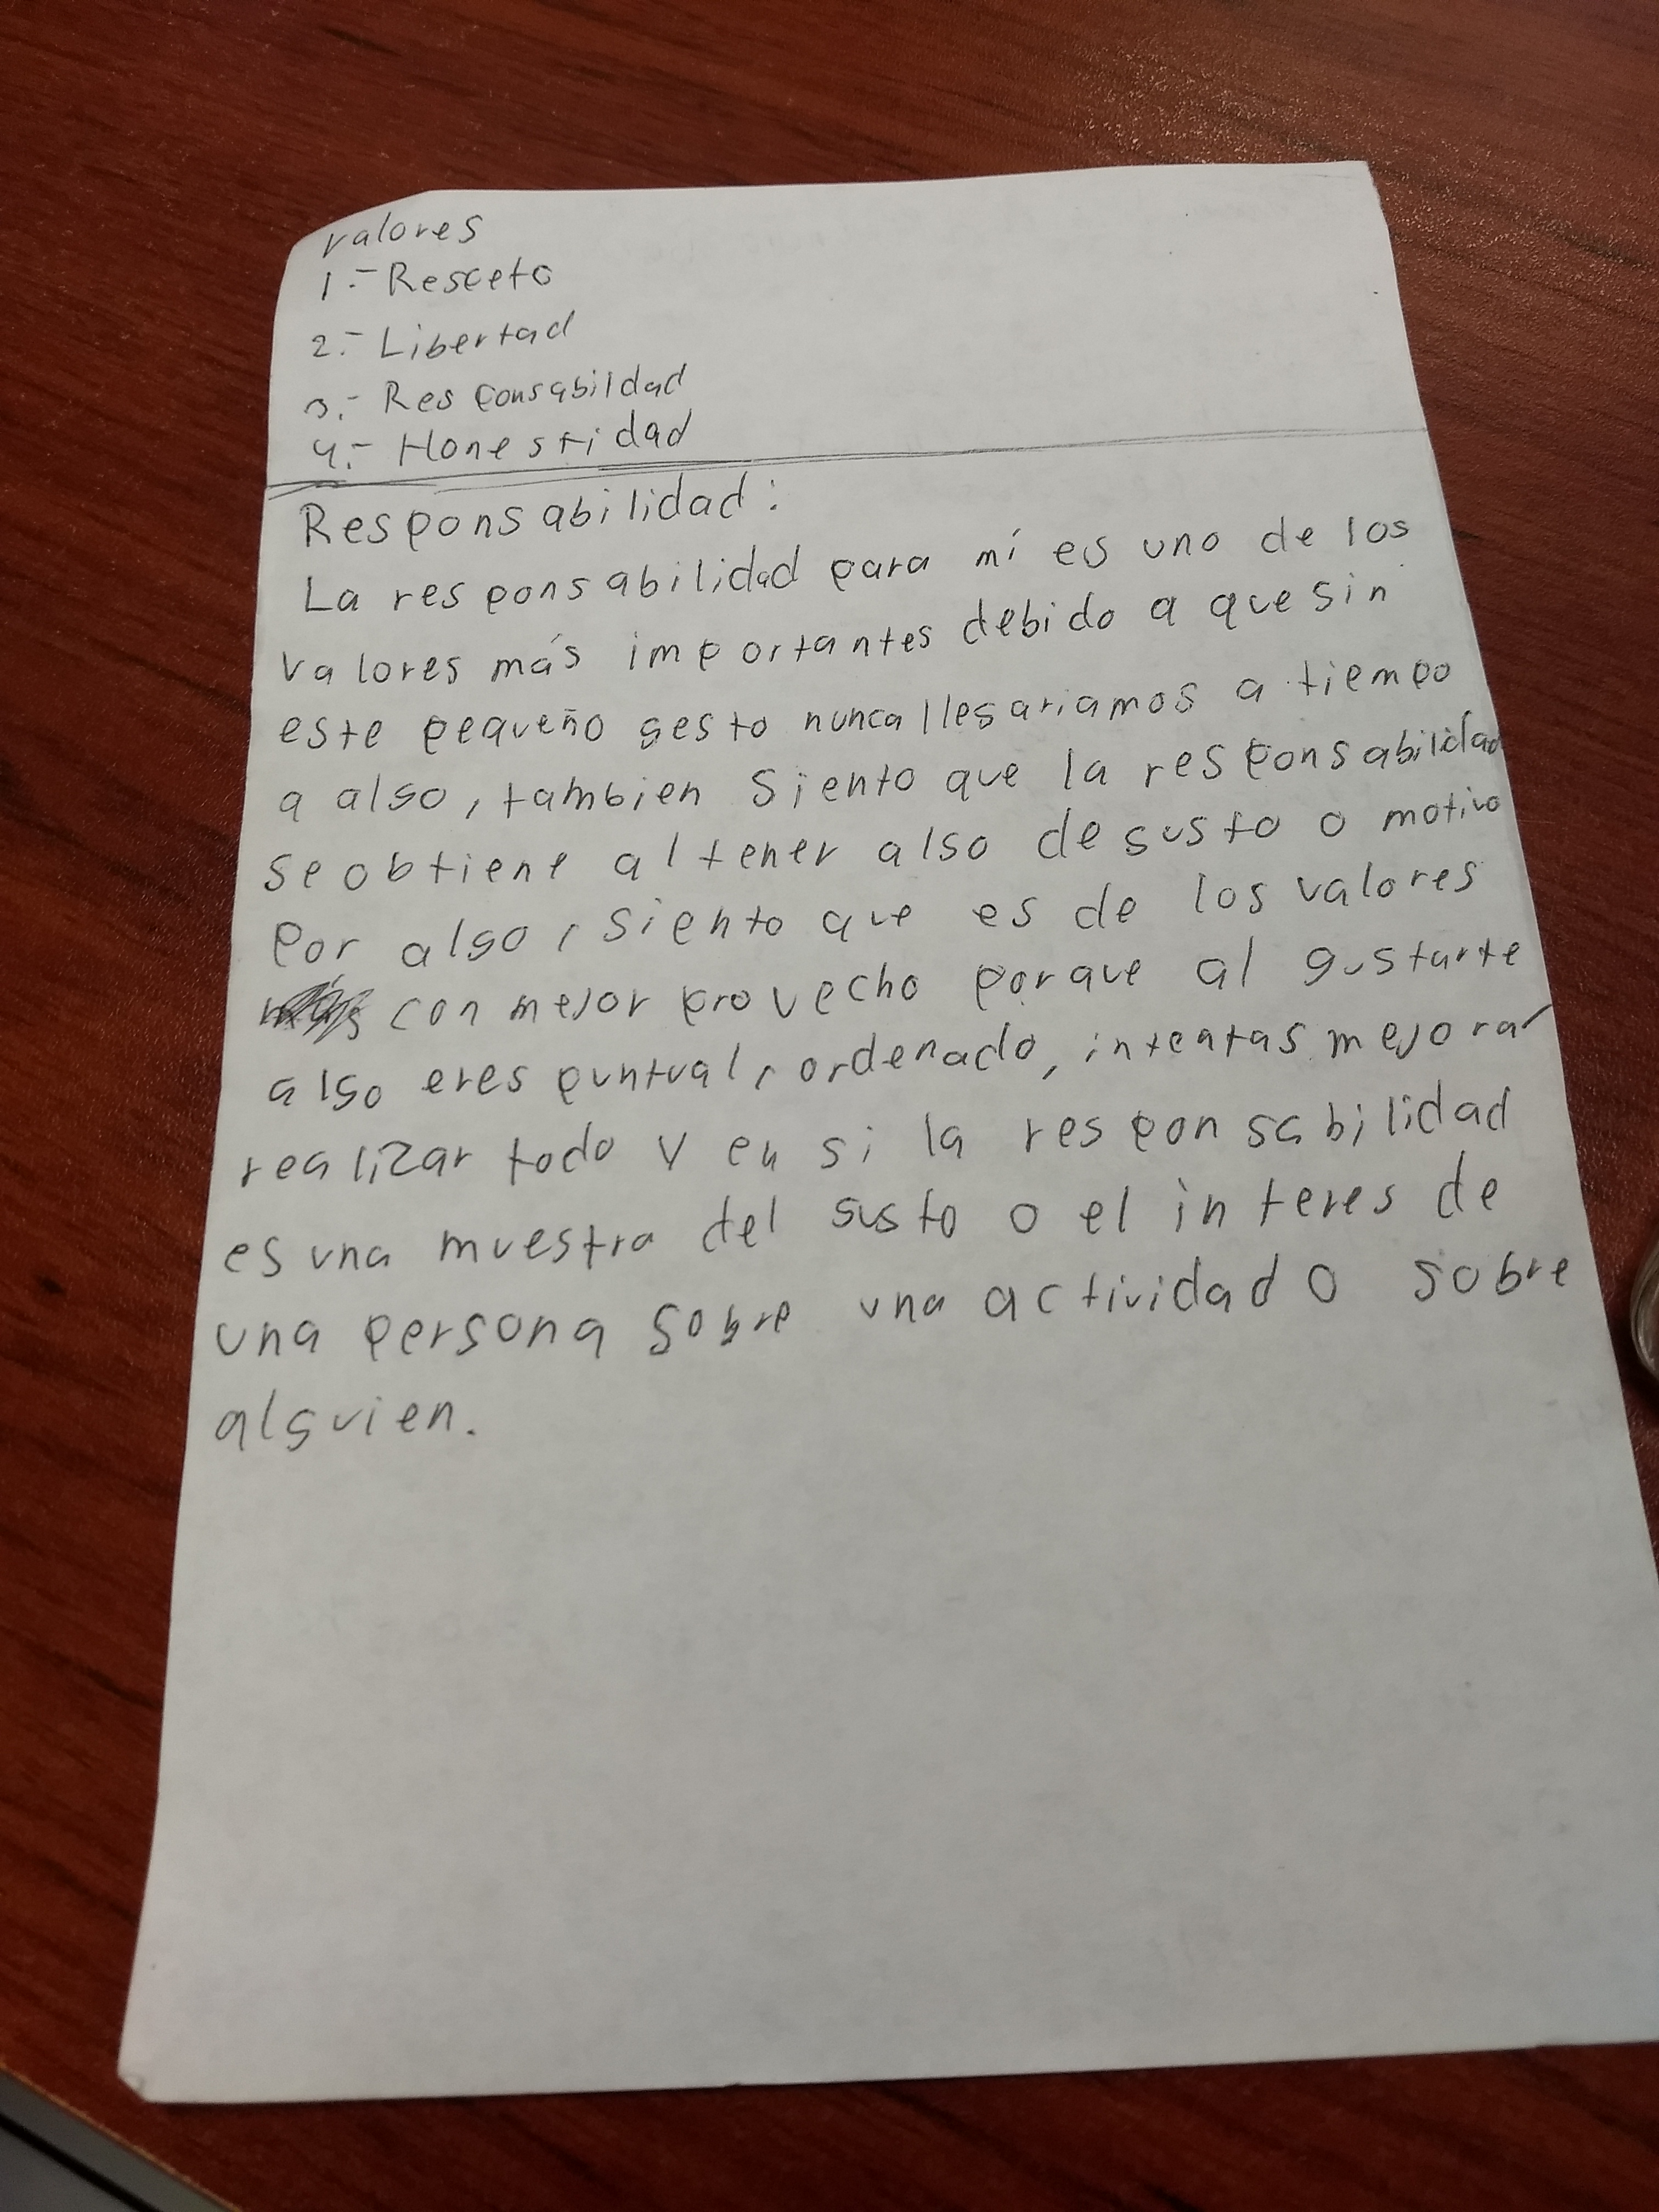 valores
1.- Respeto
2.- Libertad
3.- Responsabildad
4.- Honestidad
Responsabilidad:
La responsabilidad para mí es uno de los
valores más importantes debido a que sin
este pequeño gesto nunca llegariamos a tiempo
a algo, tambien siento que la responsabilidad
se obtiene al tener algo de gusto o motivo
por algo, siento que es de los valores
con mejor provecho porque al gustarte
algo eres puntual, ordenado, intentas mejorar
realizar todo y en si la responsabilidad
es una muestra del gusto o el interes de
una persona sobre una actividad o sobre
alguien.